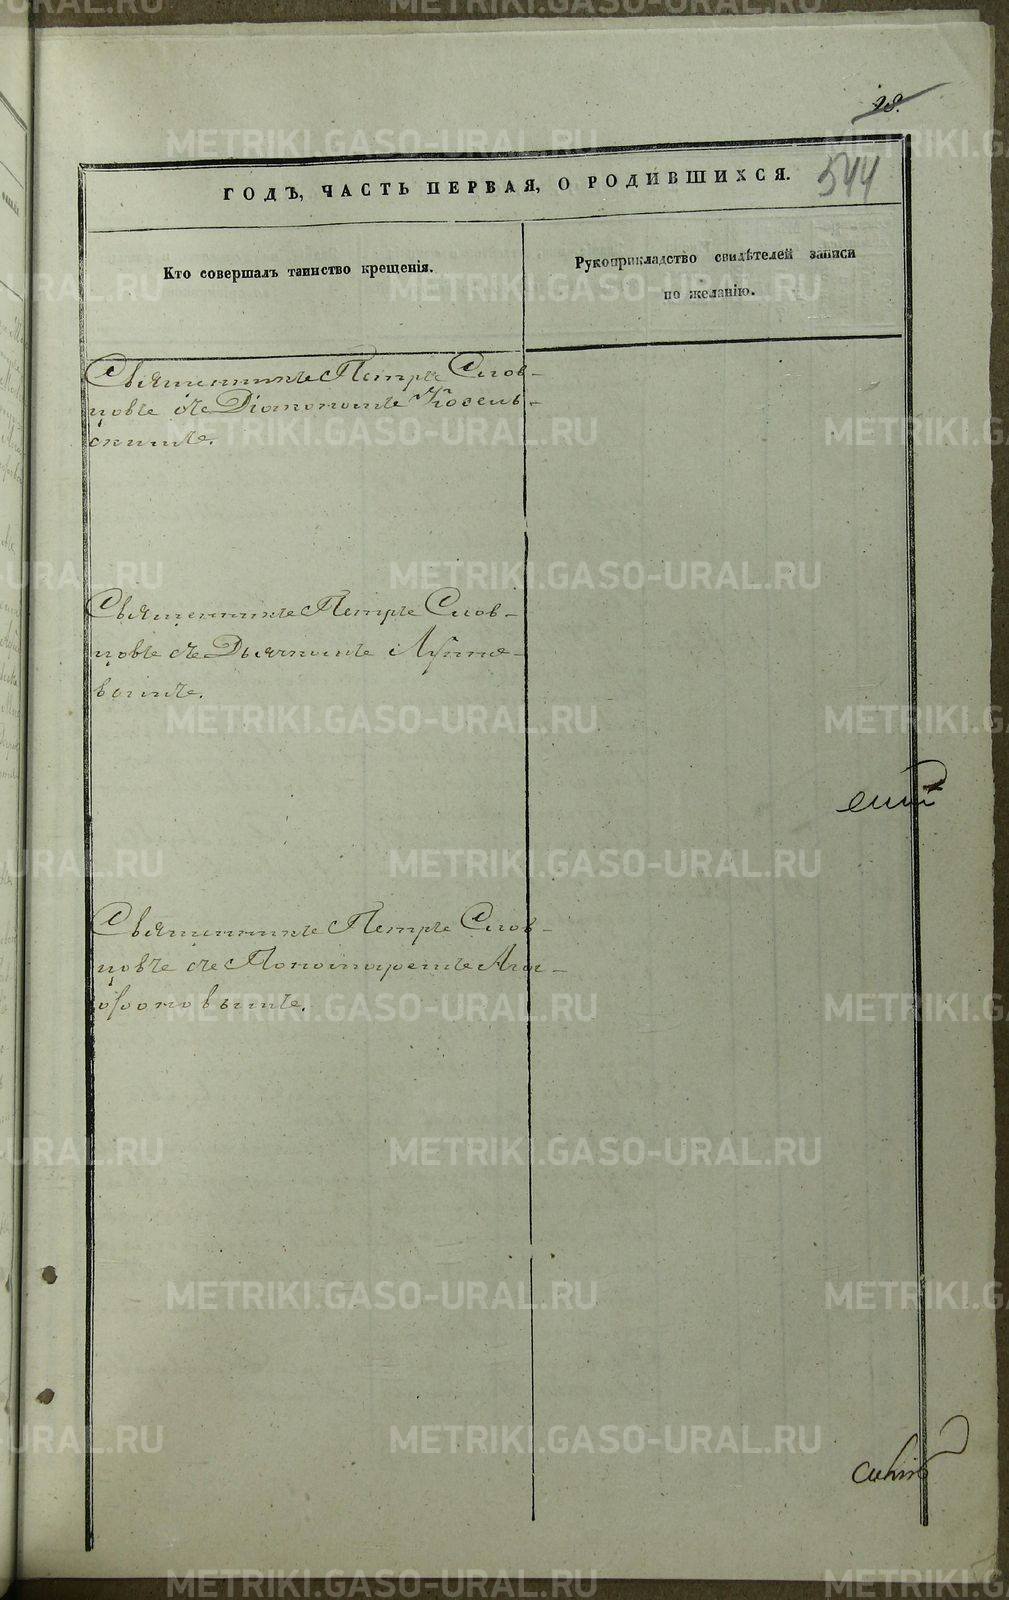 28.
544
ГОДЪ, ЧАСТЬ ПЕРВАЯ, О РОДИВШИХСЯ.
Кто совершалъ таинство крещенія.
Рукоприкладство свидѣтелей записи
по желанію.
Священникъ Петръ Слов-
цовъ съ Діакономъ Косель-
скимъ.
Священникъ Петръ Слов-
цовъ съ Дьячкомъ
вымъ.
Священникъ Петръ Слов-
цовъ съ Пономаремъ Ага-
фоновымъ.
METRIKI.GASO-URAL.RU